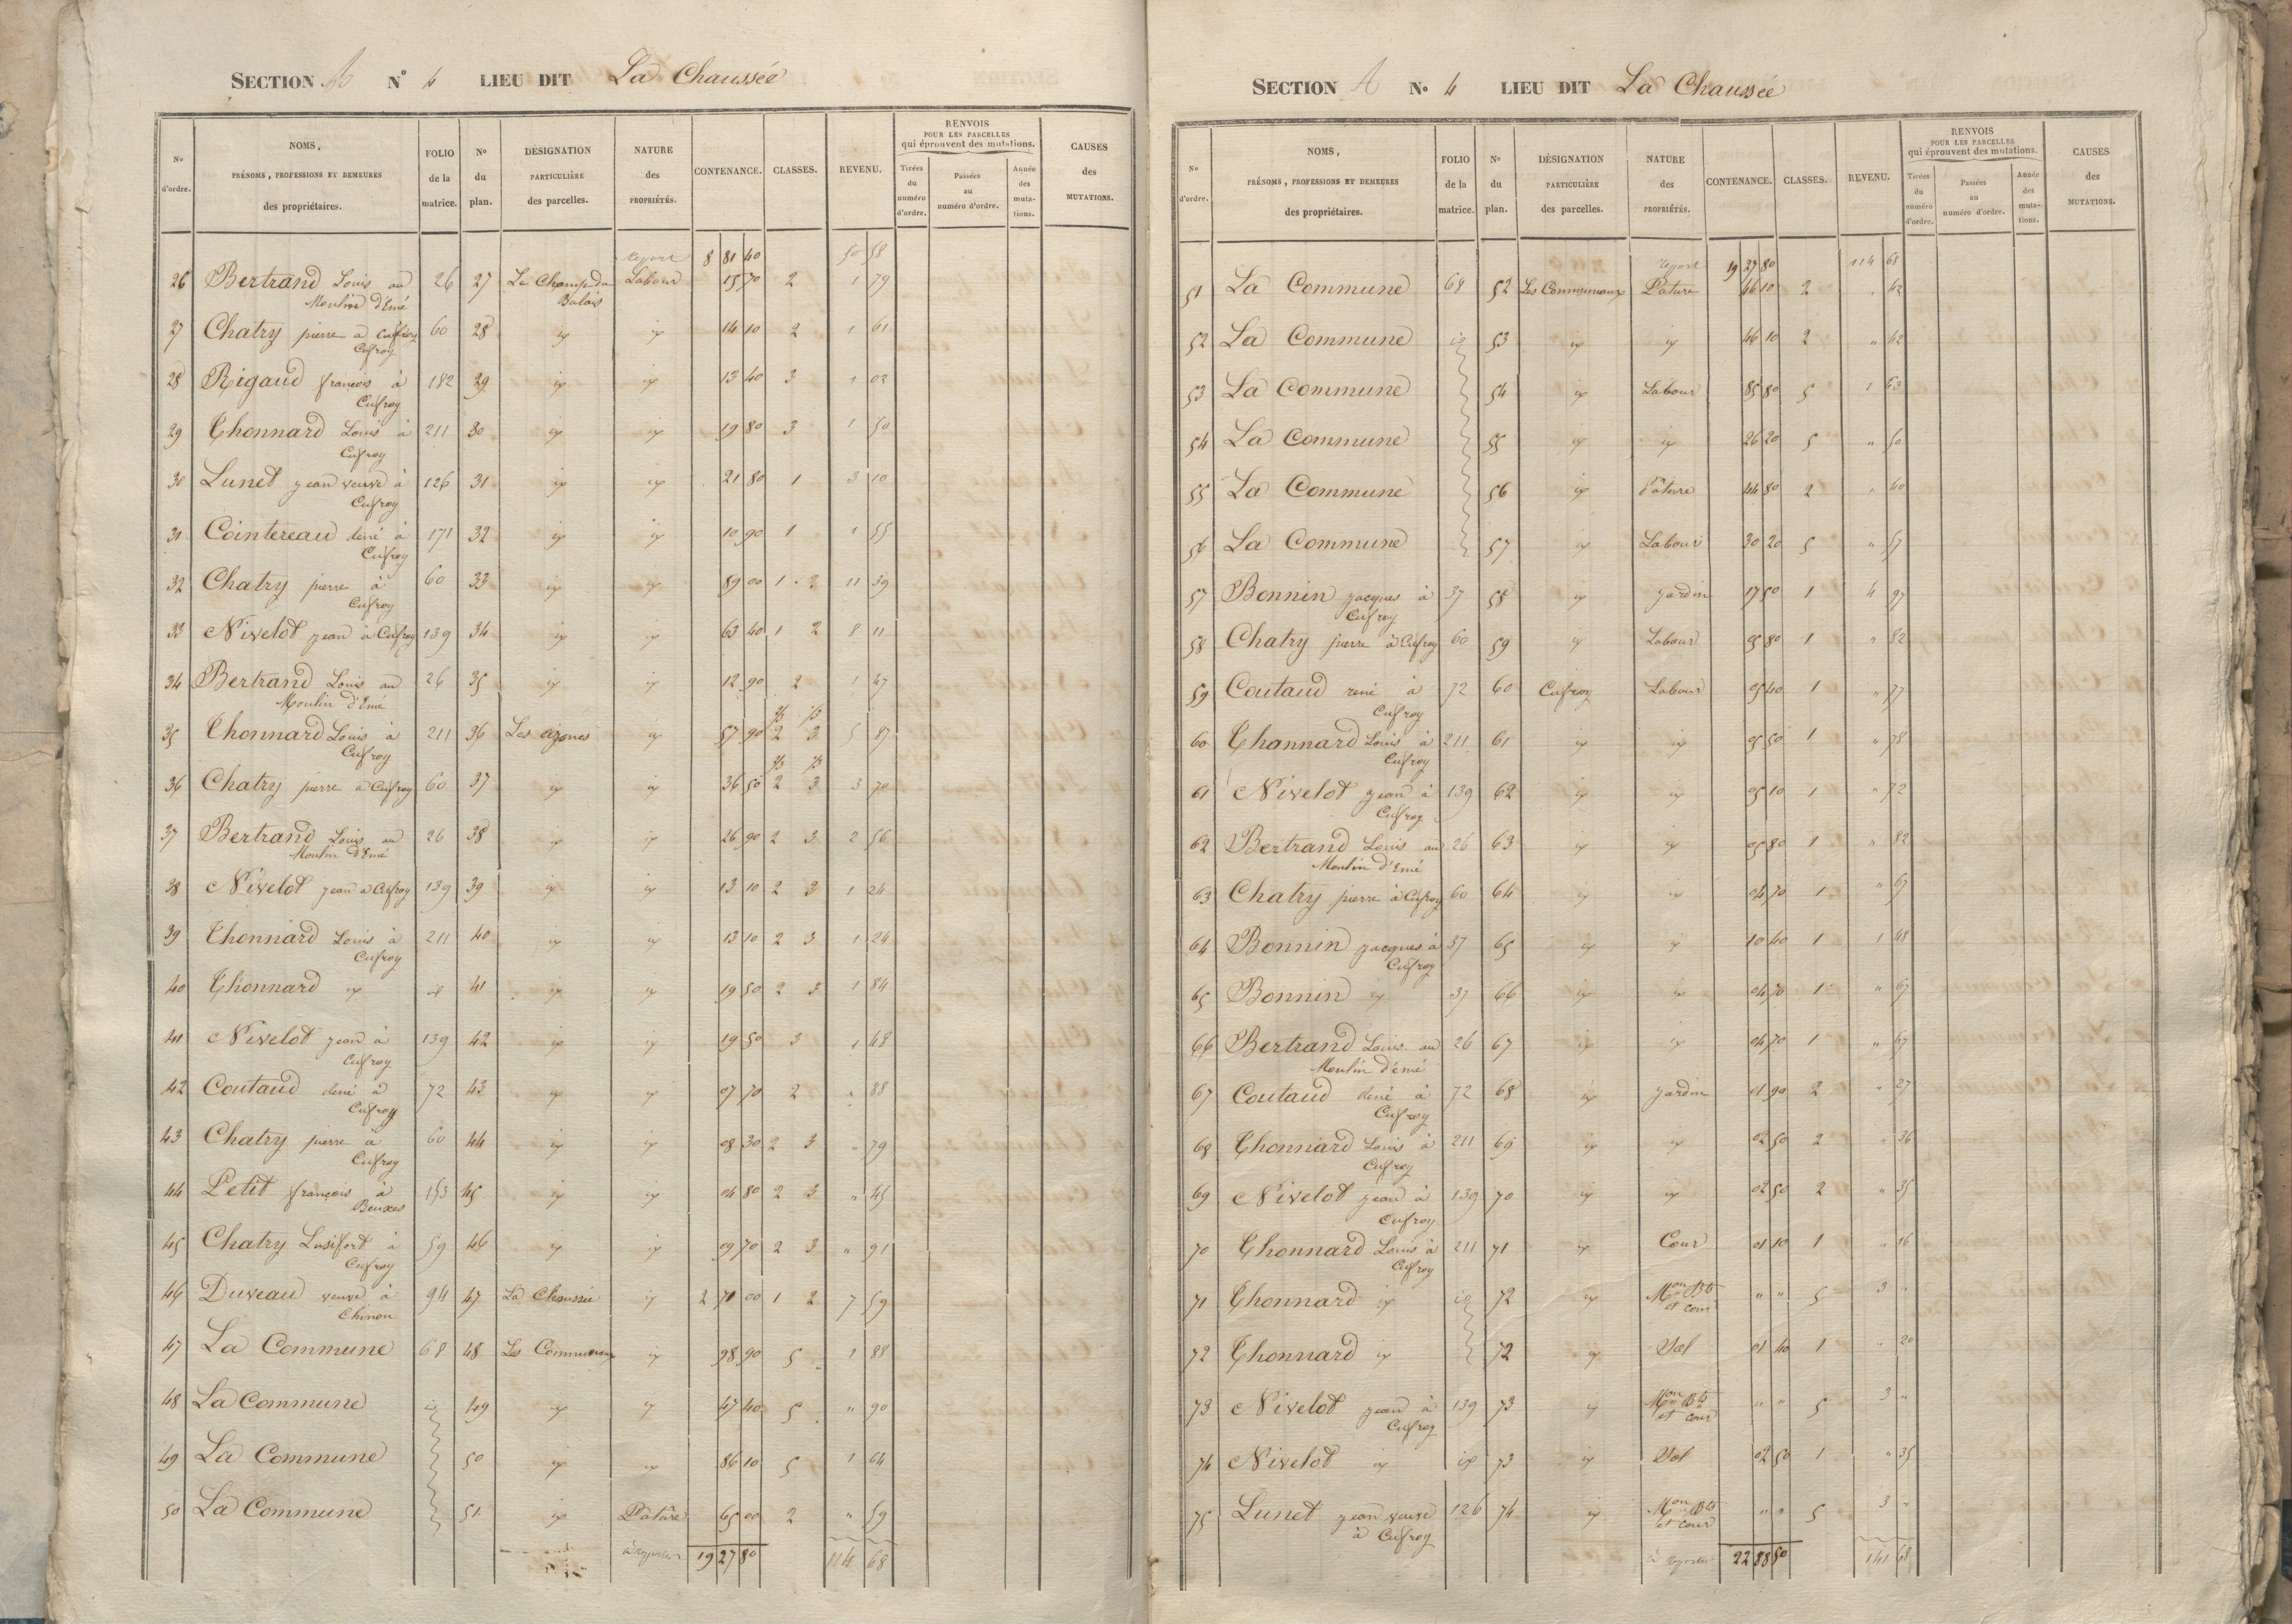 SECTION A N° 4 LIEU DIT La Chaussée
N° d'ordre. NOMS, PRÉNOMS, PROFESSIONS ET DEMEURES des propriétaires. FOLIO de la matrice. N° du plan. DÉSIGNATION PARTICULIÈRE des parcelles. NATURE des PROPRIÉTÉS. CONTENANCE. CLASSES. REVENU. RENVOIS POUR LES PARCELLES qui éprouvent des mutations. Tirées du numéro d'ordre. Passées au numéro d'ordre. Année des mutations. CAUSES des MUTATIONS.
report 8 81 40 50 58
26 Bertrand Louis au Moulin d'Emé 26 27 Le Champ du Balais Labour 15 70 2 1 79
27 Chatry pierre à Cufroy Cufroy 60 28 id id 14 10 2 1 61
28 Rigaud françois à Cufroy 182 29 id id 13 40 3 1 02
29 Thonnard Louis à Cufroy 211 30 id id 19 80 3 1 50
30 Lunet jean veuve à Cufroy 126 31 id id 21 80 1 3 10
31 Cointereau réné à Cufroy 171 32 id id 10 90 1 1 55
32 Chatry pierre à Cufroy 60 33 id id 89 00 1 2 11 39
33 Nivelot jean à Cufroy 139 34 id id 63 40 1 2 8 11
34 Bertrand Louis au Moulin d'Emé 26 35 id id 12 90 2 1 47
35 Thonnard Louis à Cufroy 211 36 Les ajones id 57 90 2 3 5 87
36 Chatry pierre à Cufroy 60 37 id id 36 50 2 3 3 70
37 Bertrand Louis au Moulin d'Emé 26 38 id id 26 90 2 3 2 56
38 Nivelot jean à Cufroy 139 39 id id 13 10 2 3 1 24
39 Thonnard Louis à Cufroy 211 40 id id 13 10 2 3 1 24
40 Thonnard id id 41 id id 19 50 2 3 1 84
41 Nivelot jean à Cufroy 139 42 id id 19 50 3 1 48
42 Coutaud réné à Cufroy 72 43 id id 07 70 2 " 88
43 Chatry pierre à Cufroy 60 44 id id 08 30 2 3 " 79
44 Petit françois à Beuxes 153 45 id id 04 80 2 3 " 45
45 Chatry Lusifort à Cufroy 59 46 id id 09 70 2 3 " 91
46 Duveau veuve à Chinon 94 47 La Chaussée id 2 71 00 1 2 7 59
47 La Commune 68 48 Les Communaux id 98 90 5 1 88
48 La Commune id 49 id id 47 40 5 " 90
49 La Commune 50 id id 86 10 5 1 64
50 La Commune 51 id Pature 65 00 2 " 59
à reporter 19 27 80 114 68
SECTION A N° 4 LIEU DIT La Chaussée
N° d'ordre. NOMS, PRÉNOMS, PROFESSIONS ET DEMEURES des propriétaires. FOLIO de la matrice. N° du plan. DÉSIGNATION PARTICULIÈRE des parcelles. NATURE des PROPRIÉTÉS. CONTENANCE. CLASSES. REVENU. RENVOIS POUR LES PARCELLES qui éprouvent des mutations. Tirées du numéro d'ordre. Passées au numéro d'ordre. Année des mutations. CAUSES des MUTATIONS.
report 19 27 80 114 68
51 La Commune 68 52 Les Communaux Pature 46 10 2 " 42
52 La Commune id 53 id id 46 10 2 " 42
53 La Commune 54 id Labour 85 80 5 1 63
54 La Commune 55 id id 26 20 5 " 50
55 La Commune 56 id Pâture 44 80 2 " 40
56 La Commune 57 id Labour 30 20 5 " 57
57 Bonnin jacques à Cufroy 37 58 id jardin 17 50 1 4 97
58 Chatry pierre à Cufroy 60 59 id Labour 05 80 1 " 82
59 Coutaud rené à Cufroy 72 60 Cufroy Labour 05 40 1 " 77
60 Thonnard Louis à Cufroy 211 61 id id 05 50 1 " 78
61 Nivelot jean à Cufroy 139 62 id id 05 10 1 " 72
62 Bertrand Louis au Moulin d'Emé 26 63 id id 05 80 1 " 82
63 Chatry pierre à Cufroy 60 64 id id 04 70 1 " 67
64 Bonnin jacques à Cufroy 37 65 id id 10 40 1 1 48
65 Bonnin id 37 66 id id 04 70 1 " 67
66 Bertrand Louis au Moulin d'émé 26 67 id id 04 70 1 " 67
67 Coutaud réné à Cufroy 72 68 id jardin 01 90 2 " 27
68 Thonnard Louis à Cufroy 211 69 id id 02 50 2 " 36
69 Nivelot jean à Cufroy 139 70 id id 02 50 2 " 35
70 Thonnard Louis à Cufroy 211 71 id Cour 01 10 1 " 16
71 Thonnard id id 72 id Mon Bts et cour " " 5 3 "
72 Thonnard id 72 id Sol 01 40 1 " 20
73 Nivelot jean à Cufroy 139 73 id Mon Bts et cour " " 5 3 "
74 Nivelot id id 73 id Sol 02 50 1 " 35
75 Lunet jean veuve à Cufroy 126 74 id Mon Bts et cour " " 5 3 "
à reporter 22 88 50 141 68